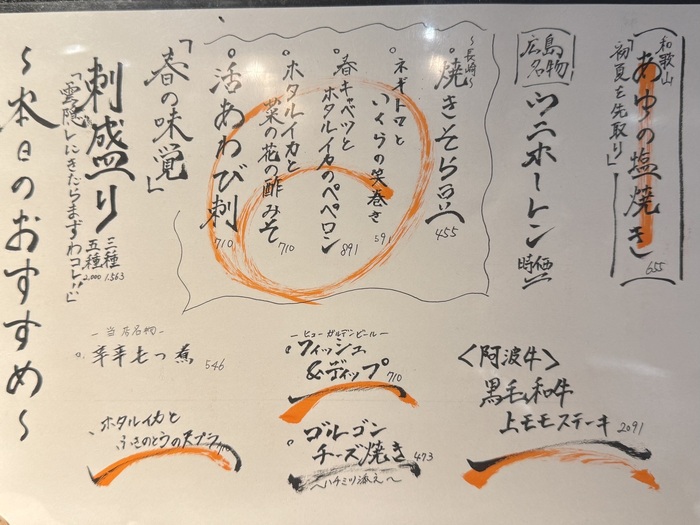 和歌山
あゆの塩焼き 655
「初夏を先取り」
広島
名物
ウニホーレン 時価
〜長崎〜
・焼きそら豆 455
・ネギトロと
いくらの笑巻き 591
・春キャベツと
ホタルイカのペペロン 891
・ホタルイカと
菜の花の酢みそ 710
・活あわび刺 710
「春の味覚」
刺盛り
三種 1563
五種 2,000
「雲隠レにきたらまずわコレ!!」
〜本日のおすすめ〜
<阿波牛>
黒毛和牛
上モモステーキ 2091
-ヒューガルデンビール-
・フィッシュ
&ディップ 710
・ゴルゴン
チーズ焼き 473
〜ハチミツ添え〜
-当店名物-
・辛辛もつ煮 546
・ホタルイカと
ふきのとうの天プラ